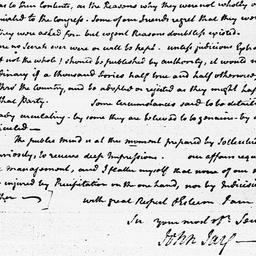 as to their Contents, as the Reasons why they were not wholly
to the Congress. Some of our Friends regret that they were
they were asked for – but cogent Reasons doubtless existed.
no Secrets ever were or will be kept – unless judicious
not the whole) should be published by authority, it would
if a thousand Copies half true and half otherwise,
thro the country, and be adopted or rejected as they might
that Party. Some Circumstances said to be
circulating – by some they are believed to be genuine – by
The public mind is at this moment prepared by
to receive deep Impressions. our affairs require
management, and I flatter myself that none of our
injured by Precipitation on the one hand, nor by Indecision
with great Respect & Esteem I am
Sir your most obt. Servt
John Jay